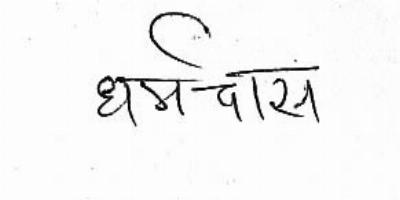 धर्मदास